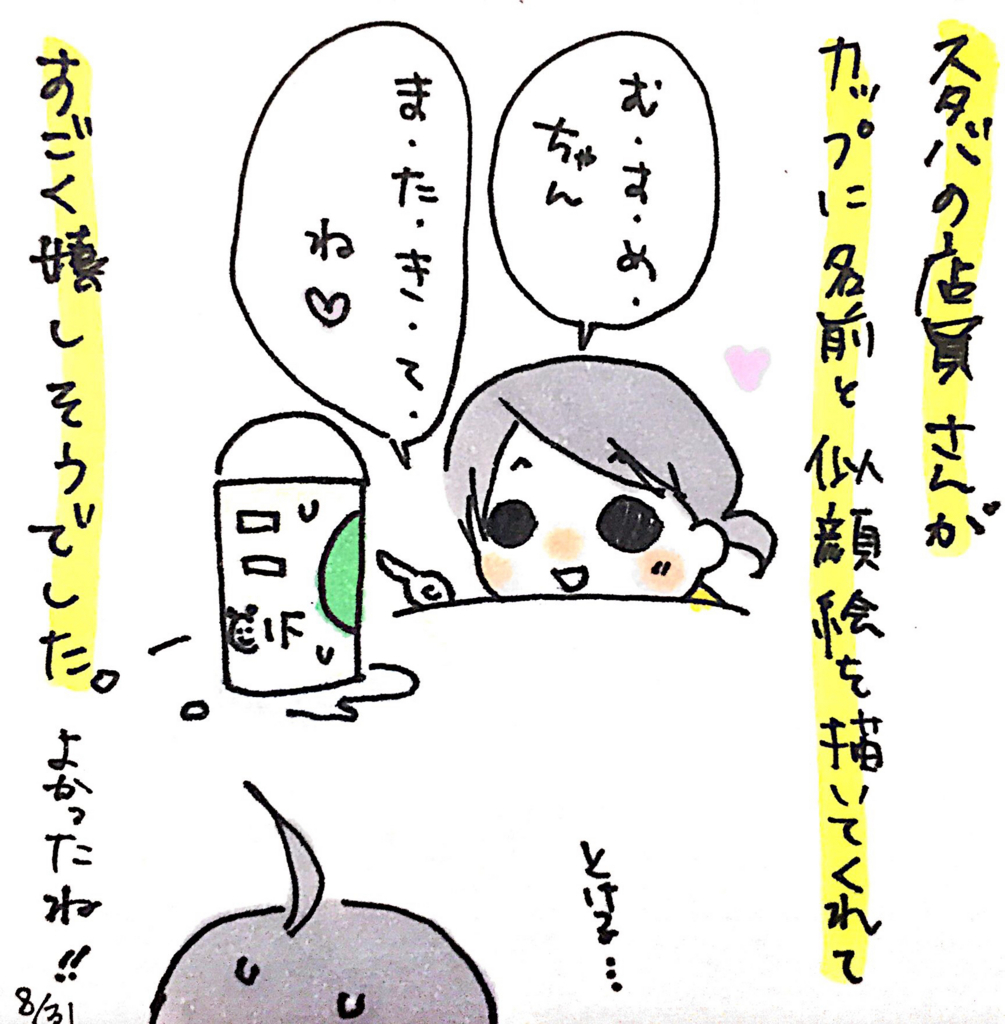 スタバの店員さんが
カップに名前と似顔絵を描いてくれて
む・す・め・
ちゃん
ま・た・き・て・
ね♡
とける…
すごく嬉しそうでした。
よかったね!!
8/31